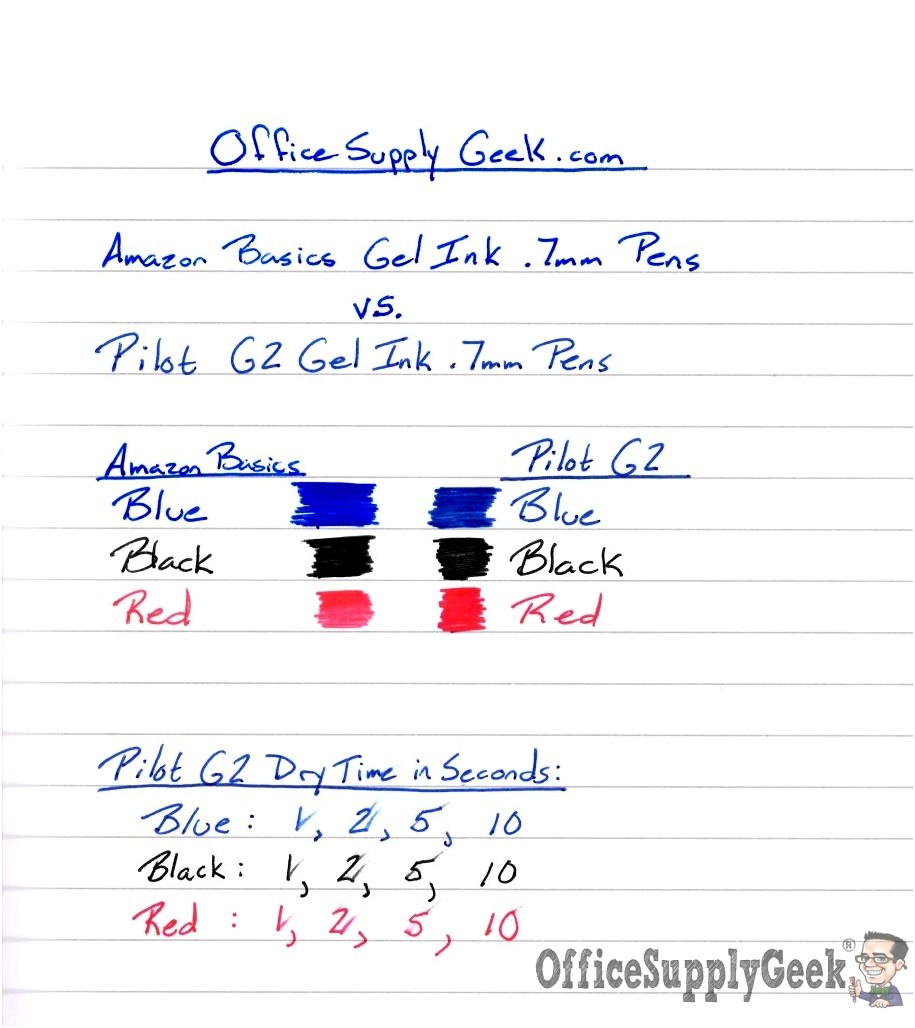 OfficeSupplyGeek.com
Amazon Basics Gel Ink .7mm Pens
vs.
Pilot G2 Gel Ink .7mm Pens
Amazon Basics Pilot G2
Blue Blue
Black Black
Red Red
Pilot G2 Dry Time in Seconds:
Blue: 1, 2, 5, 10
Black: 1, 2, 5, 10
Red: 1, 2, 5, 10
OfficeSupplyGeek®